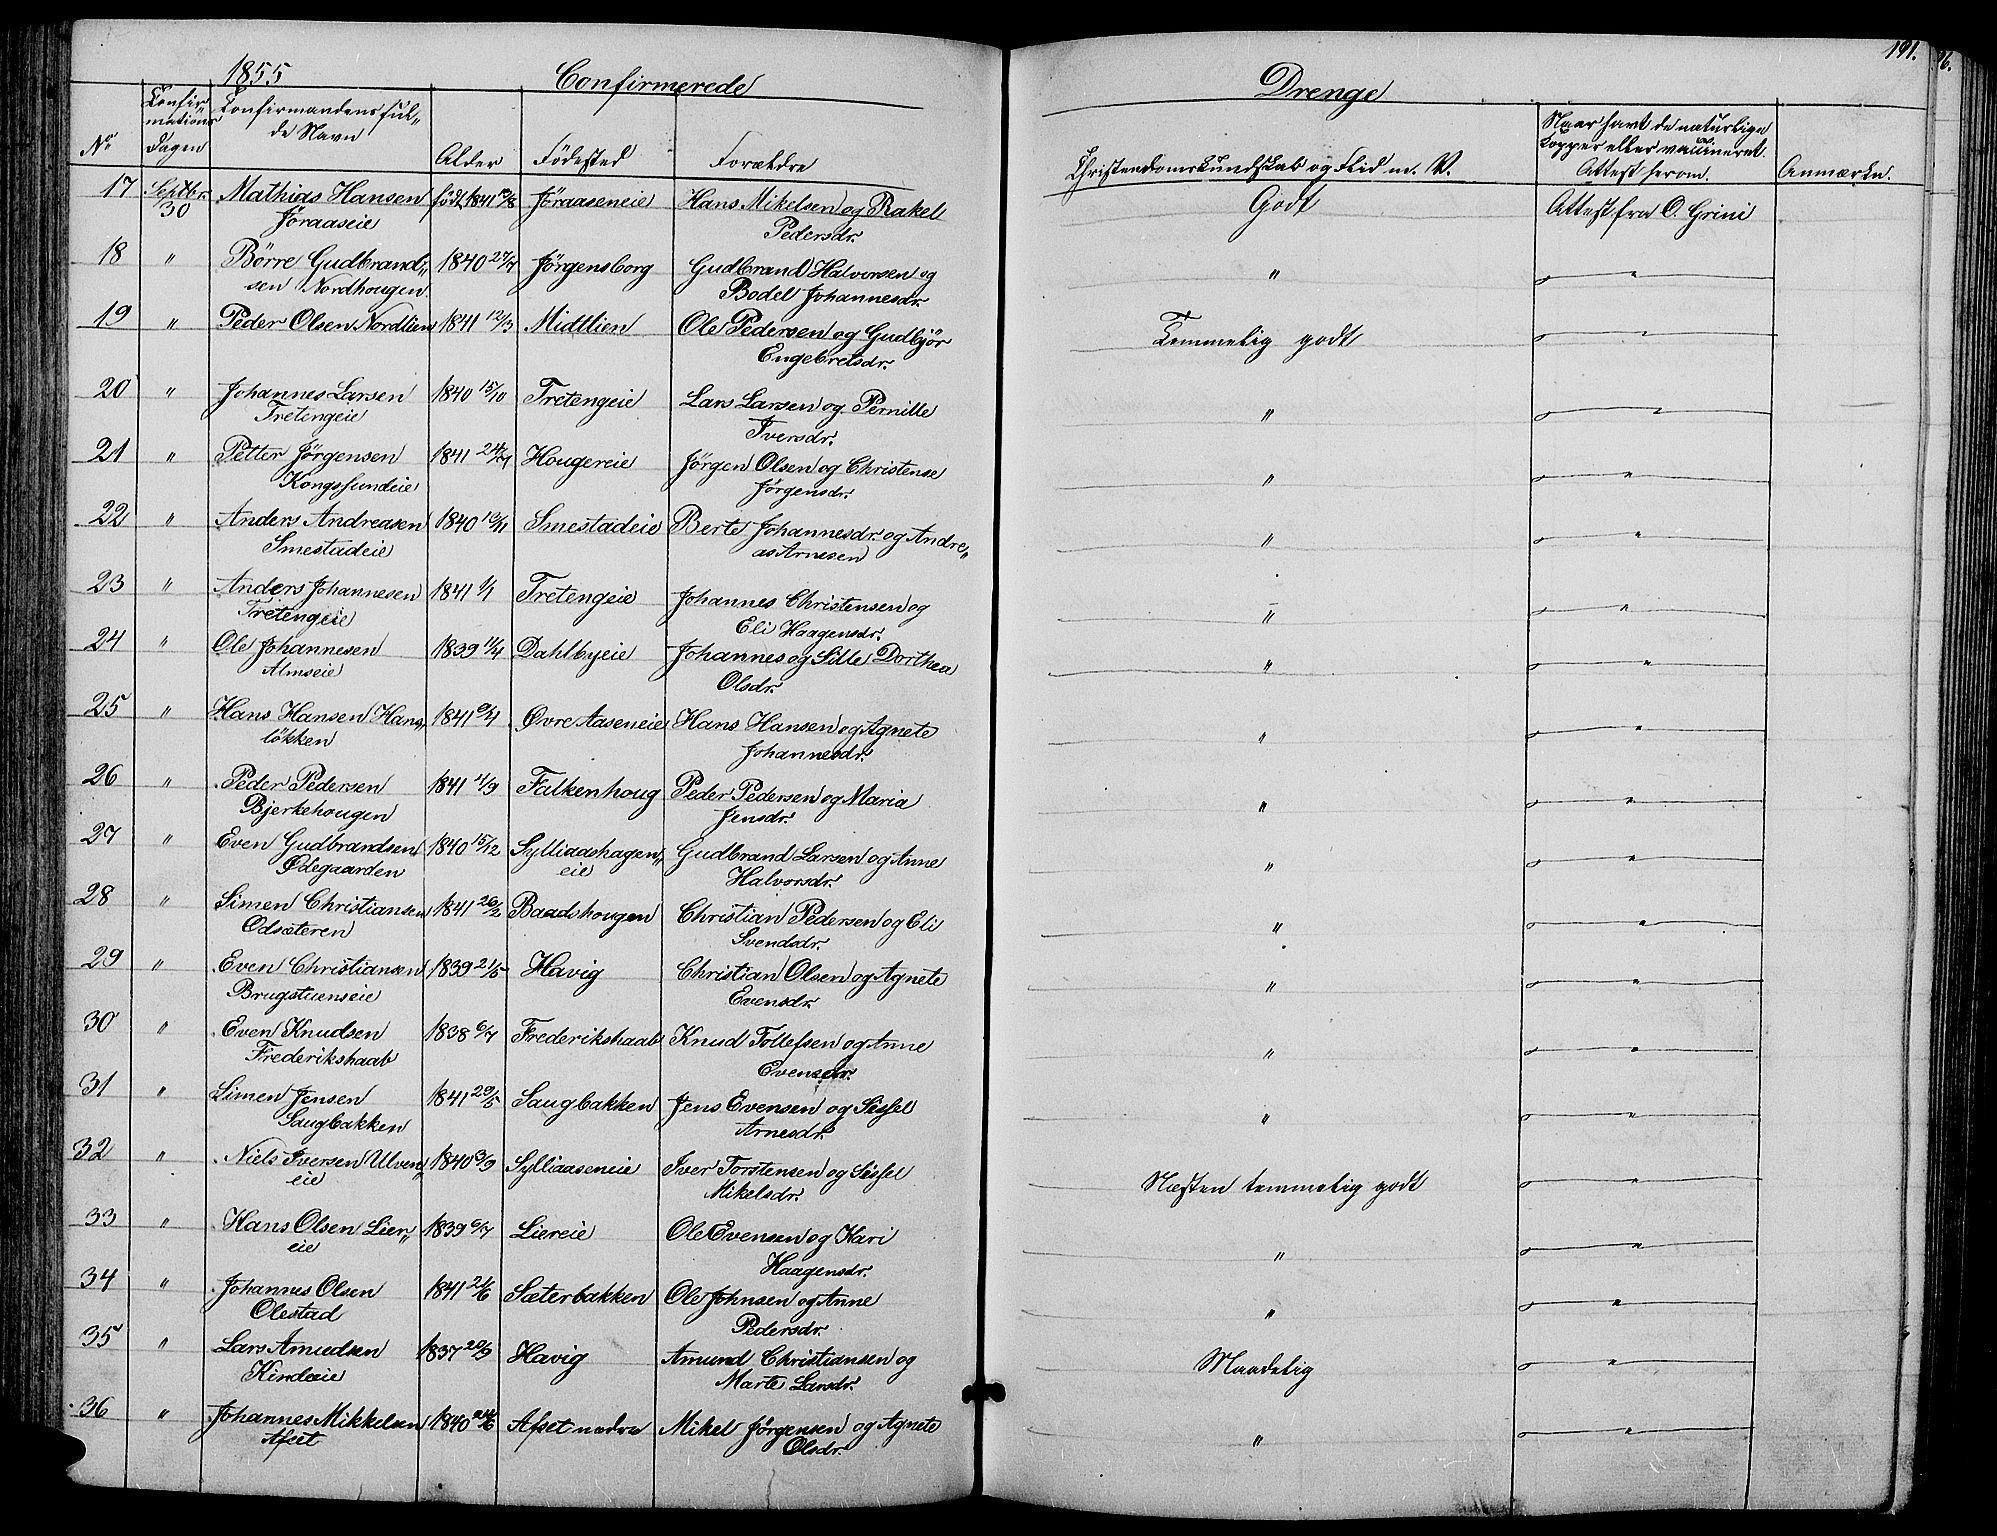 1855 Confirmerede Drenge 191.
No Confirmations Dagen Confirmandens fulde Navn Alder Födested Forældre Christendomskundskab og Flid m. V. Naar havt de naturlige Kopper eller vaccineret. Attest herom. Anmærkn.
17 Septbr. 30 Mathias Hansen födt 1841 Jöraaseneie Hans Mikelsen og Rakel Godt Attest fra O. Grini
Jöraaseie Pedersdr.
18 " Börre Gudbrand„ 1840 27/7 Jörgensborg Gudbrand Halvorsen og " "
sen Nordhougen Bodel Johannesdr.
19 " Peder Olsen Nordlien 1841 12/3 Midtlien Ole Pedersen og Gudbjör Temmelig godt "
Engebretsdr.
20 " Johannes Larsen 1840 15/10 Tretengeie Lars Larsen og Pernille " "
Tretengeie Iversdr.
21 " Petter Jörgensen 1841 Hougereie Jörgen Olsen og Christense " "
Kongssundeie Jörgensdr.
22 " Anders Andreasen 1840 Smestadeie Berte Johannesdr. og Andre„ " "
Smestadeie as Arnesen
23 " Anders Johannesen 1841 1/1 Tretengeie Johannes Christensen og " "
Tretengeie Eli Haagensdr.
24 " Ole Johannesen 1839 11/4 Dahlbyeie Johannes og Sille Dorthea " "
Almseie Olsdr.
25 " Hans Hansen Hans„ 1841 Övre Aaseneie Hans Hansen og Agnete " "
lökken Johannesdr.
26 " Peder Pedersen 1841 11/9 Falkenhoug Peder Pedersen og Maria " "
Bjerkehougen Jensdr.
27 " Even Gudbrandsen 1840 15/12 Sylliaashagen„ Gudbrand Larsen og Anne " "
Ödegaarden eie Halvorsdr.
28 " Simen Christiansen 1841 26/2 Baadshougen Christian Pedersen og Eli " "
Odsæteren Svendsdr.
29 " Even Christiansen 1839 21/5 Havig Christian Olsen og Agnete " "
Brugstuenseie Evensdr.
30 " Even Knudsen 1838 6/7 Frederikshaab Knud Tollefsen og Anne " "
Frederikshaab Evensdr.
31 " Simen Jensen 1841 29/5 Saugbakken Jens Evensen og Sissel " "
Saugbakken Arnesdr.
32 " Niels Iversen Ulven„ 1840 3/9 Sylliaaseneie Iver Torstensen og Sissel Næsten temmelig godt "
eie Mikelsdr.
33 " Hans Olsen Lier„ 1839 6/7 Liereie Ole Evensen og Kari " "
eie Haagensdr.
34 " Johannes Olsen 1841 21/6 Sæterbakken Ole Johnsen og Anne " "
Olestad Pedersdr.
35 " Lars Amudsen 1837 20/9 Havig Amund Christiansen og Maadelig "
Kindeeie Marte Larsdr.
36 " Johannes Mikkelsen 1840 Afset nedre Mikel Jörgensen og Agnete " "
Afset Olsdr.